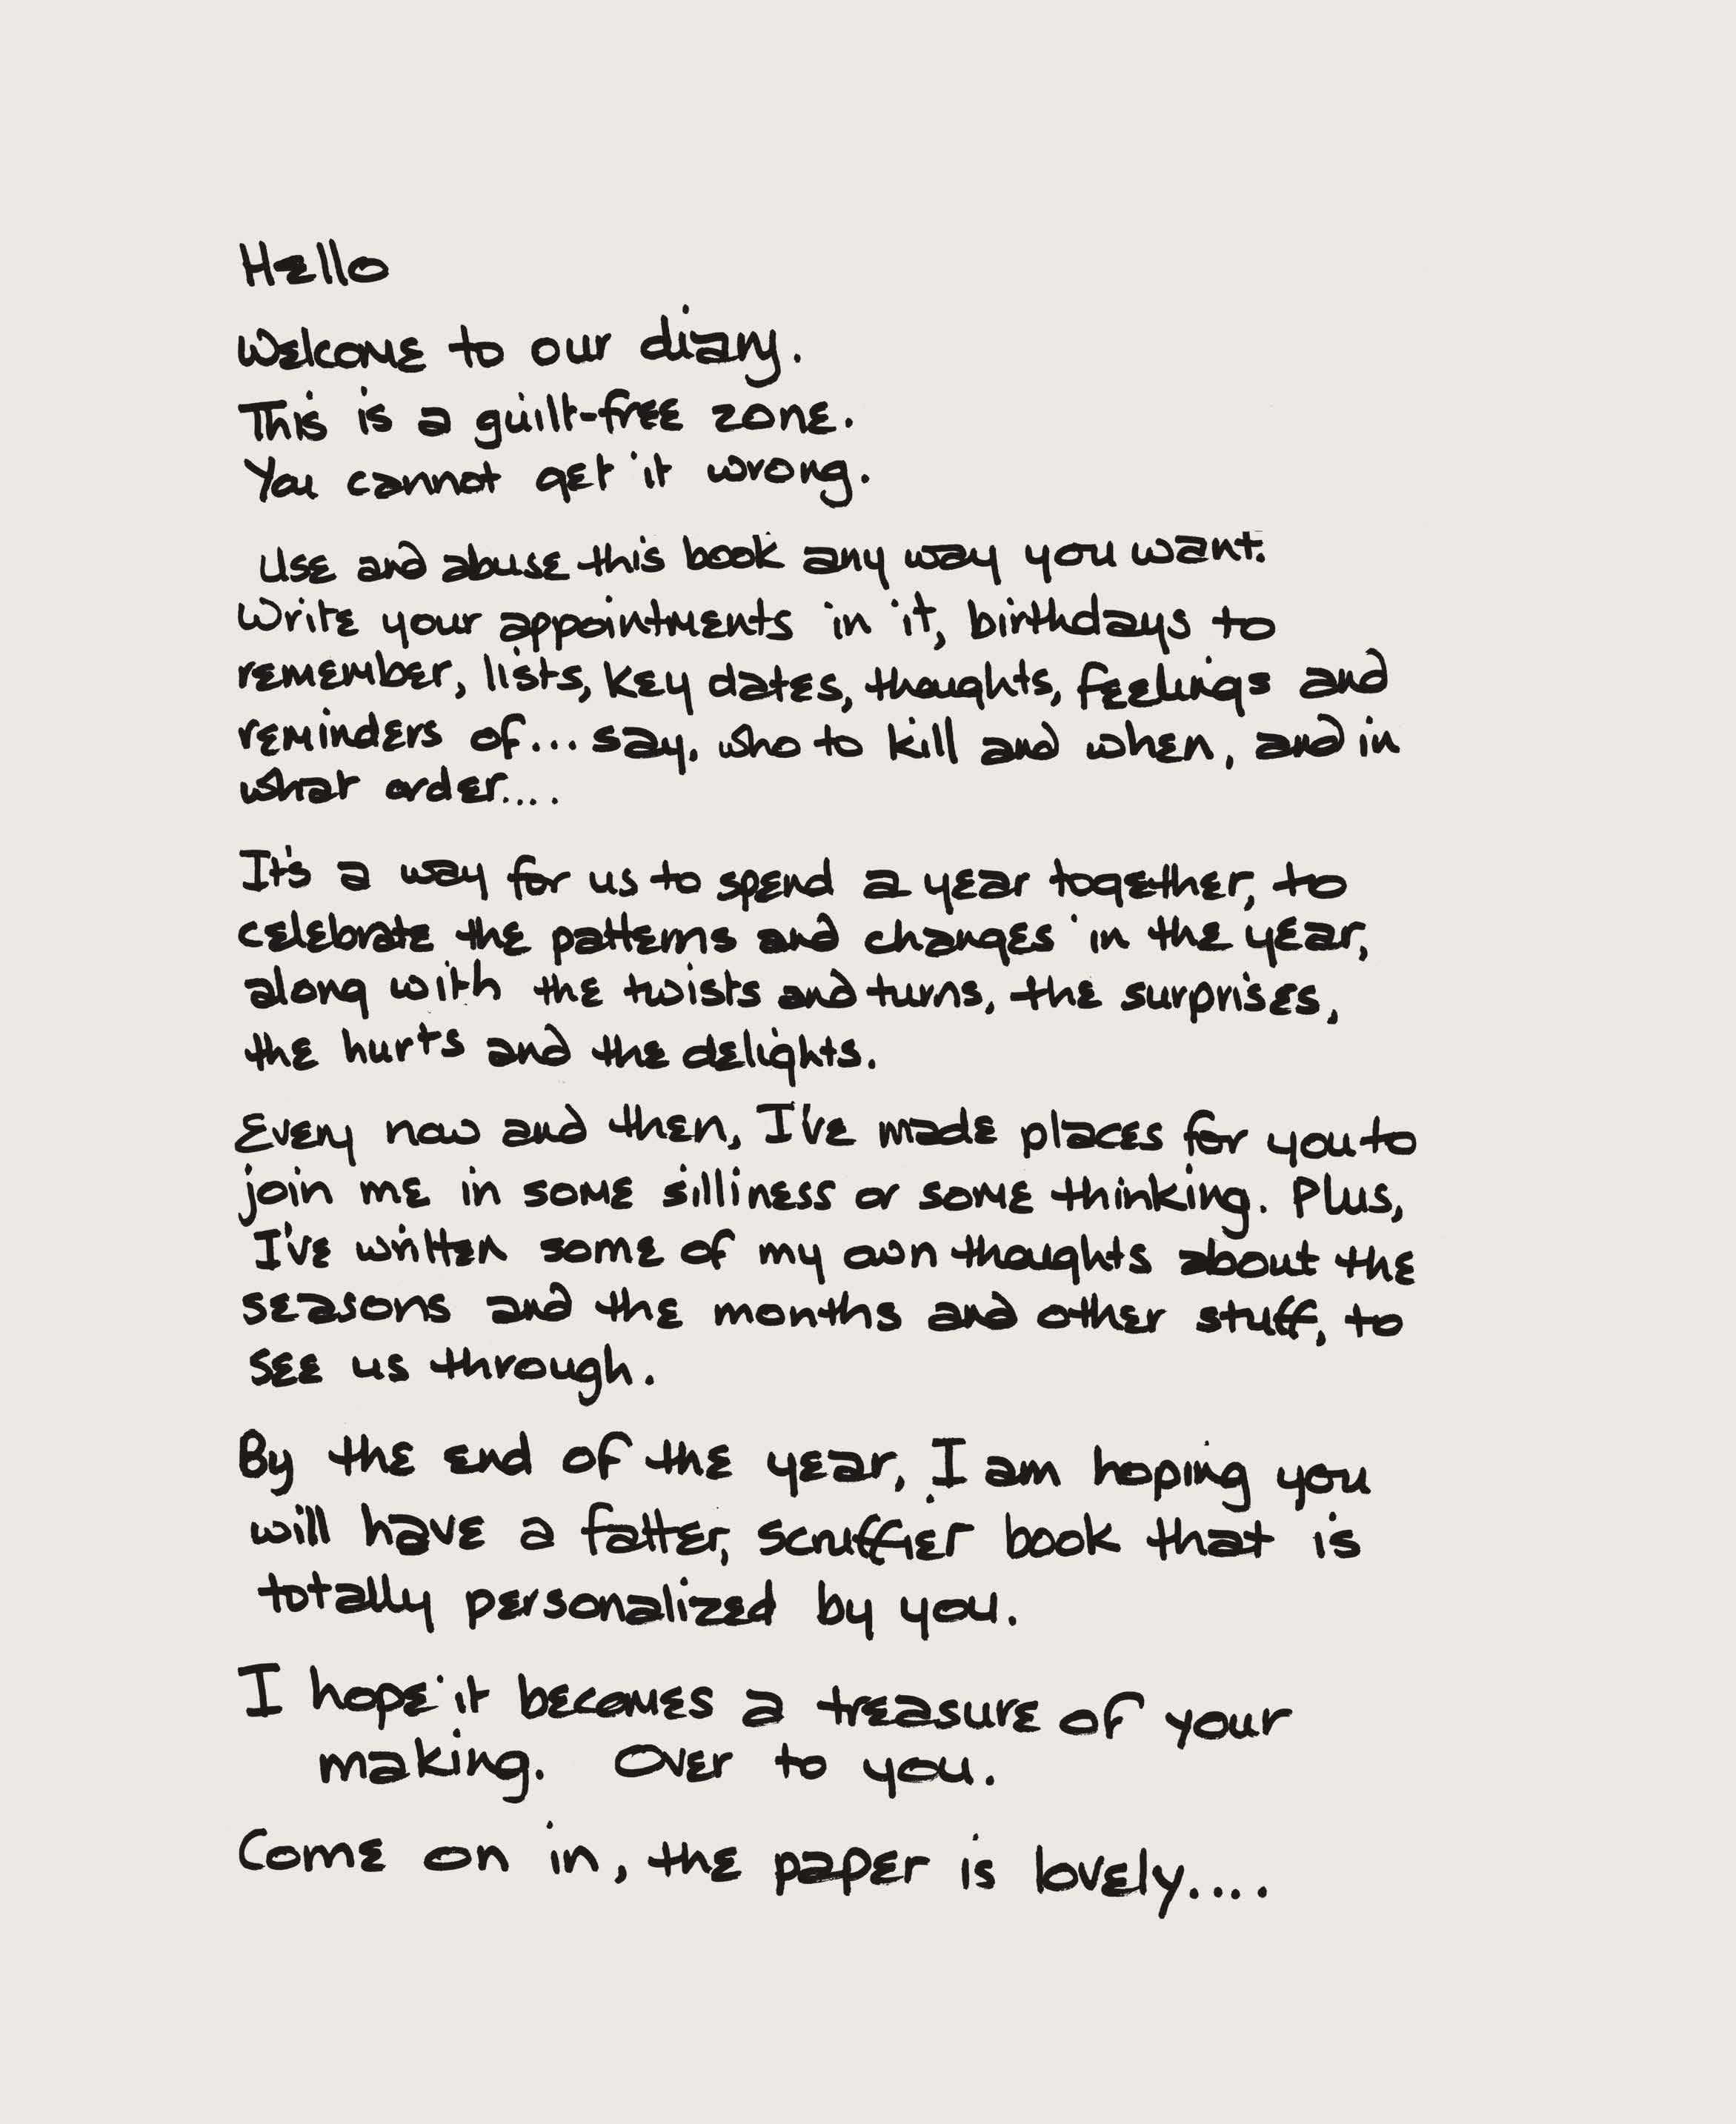 Hello
Welcome to our diary.
This is a guilt-free zone.
You cannot get it wrong.
Use and abuse this book any way you want.
Write your appointments in it, birthdays to
remember, lists, key dates, thoughts, feelings and
reminders of... say, who to kill and when, and in
what order....
It's a way for us to spend a year together, to
celebrate the patterns and changes in the year,
along with the twists and turns, the surprises,
the hurts and the delights.
Every now and then, I've made places for you to
join me in some silliness or some thinking. Plus,
I've written some of my own thoughts about the
seasons and the months and other stuff, to
see us through.
By the end of the year, I am hoping you
will have a fatter, scruffier book that is
totally personalized by you.
I hope it becomes a treasure of your
making. Over to you.
Come on in, the paper is lovely....